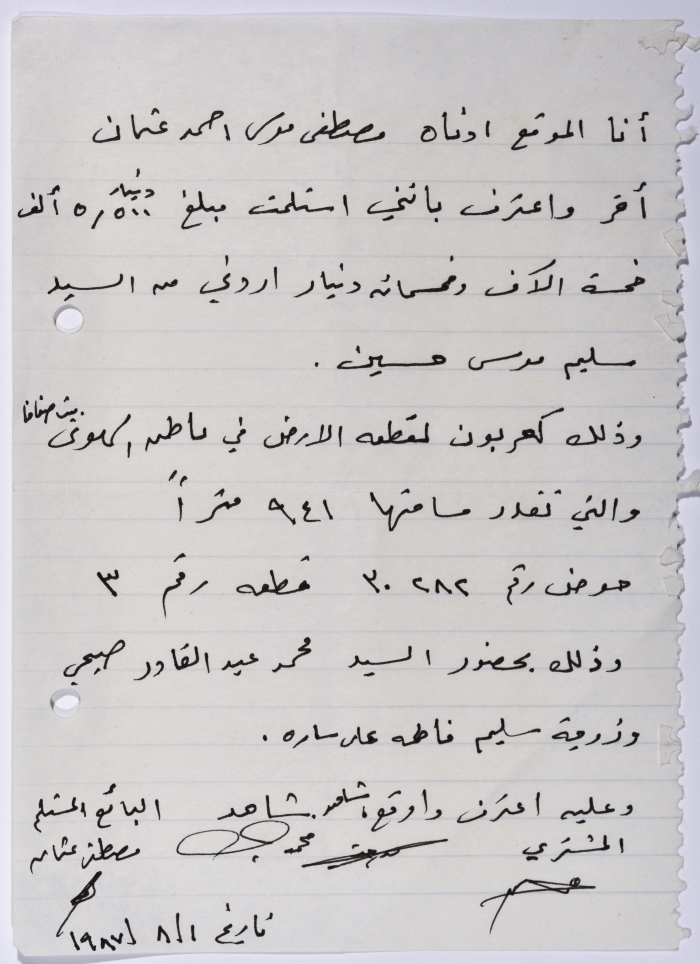 أنا الموقع ادناه مصطفى موسى احمد عثمان
أقر واعترف بأنني استلمت مبلغ ٥٫٥٠٠ دينار ألف
خمسة الاف وخمسمائه دينار اردني من السيد
سليم موسى حسين .
وذلك كعربون لقطعه الارض في بيت صفافا
والتي تقدر مساحتها ٩٤١ متراً
حوض رقم ٣٠٢٨٢ قطعه رقم ٣
وذلك بحضور السيد محمد عبد القادر صبحي
وزوجة سليم فاطمه
وعليه اعترف واوقع، شاهد شاهد البائع المستلم
المشتري محمد مصطفى عثمان
تاريخ ١/٨/١٩٨٧